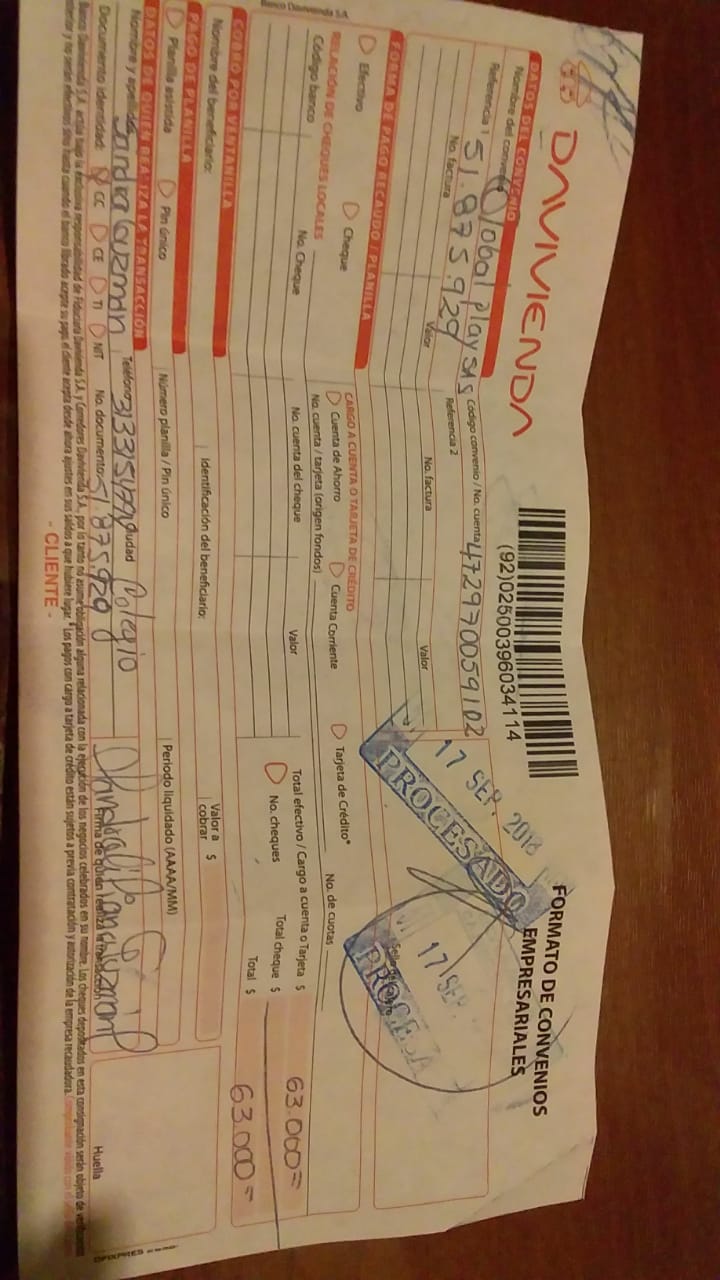 DAVIVIENDA
(92)02500396034114
FORMATO DE CONVENIOS
EMPRESARIALES
DATOS DEL CONVENIO
Nombre del convenio Global play SAS Código convenio / No. cuenta 472970059102
Referencia 1 51.875.929 Referencia 2
No. factura Valor No. factura Valor
17 SEP 2018
PROCESADO
17 SEP
PROCESA
FORMA DE PAGO RECAUDO / PLANILLA
Efectivo Cheque
CARGO A CUENTA O TARJETA DE CRÉDITO
Cuenta de Ahorro Cuenta Corriente Tarjeta de Crédito*
No. cuenta / tarjeta (origen fondos) No. de cuotas
RELACIÓN DE CHEQUES LOCALES
Código banco No. Cheque No. cuenta del cheque Valor
Total efectivo / Cargo a cuenta o Tarjeta $ 63.000=
No. cheques Total cheque $
Total $ 63.000=
COBRO POR VENTANILLA
Nombre del beneficiario: Identificación del beneficiario: Valor a cobrar $
PAGO DE PLANILLA
Planilla asistida Pin único Número planilla / Pin único Periodo liquidado (AAAA/MM)
DATOS DE QUIEN REALIZA LA TRANSACCIÓN
Nombre y apellidos Sandra Guzmán Teléfono Ciudad Colegio
Documento identidad: CC CE TI NIT No. documento: 51.875.929
Firma de quien realiza la transacción
Huella
Banco Davivienda S.A. actúa bajo la exclusiva responsabilidad de Fiduciaria Davivienda S.A. y Corredores Davivienda S.A., por lo tanto no asume obligación alguna relacionada con la ejecución de los negocios celebrados en su nombre. Los cheques depositados en esta consignación serán objeto de verificación
posterior y no serán efectivos sino hasta cuando el banco librado acepte su pago, el cliente acepta desde ahora ajustes en sus saldos a que hubiere lugar. *Los pagos con cargo a tarjeta de crédito están sujetos a previa contratación y autorización de la empresa recaudadora.
- CLIENTE -
Banco Davivienda S.A.